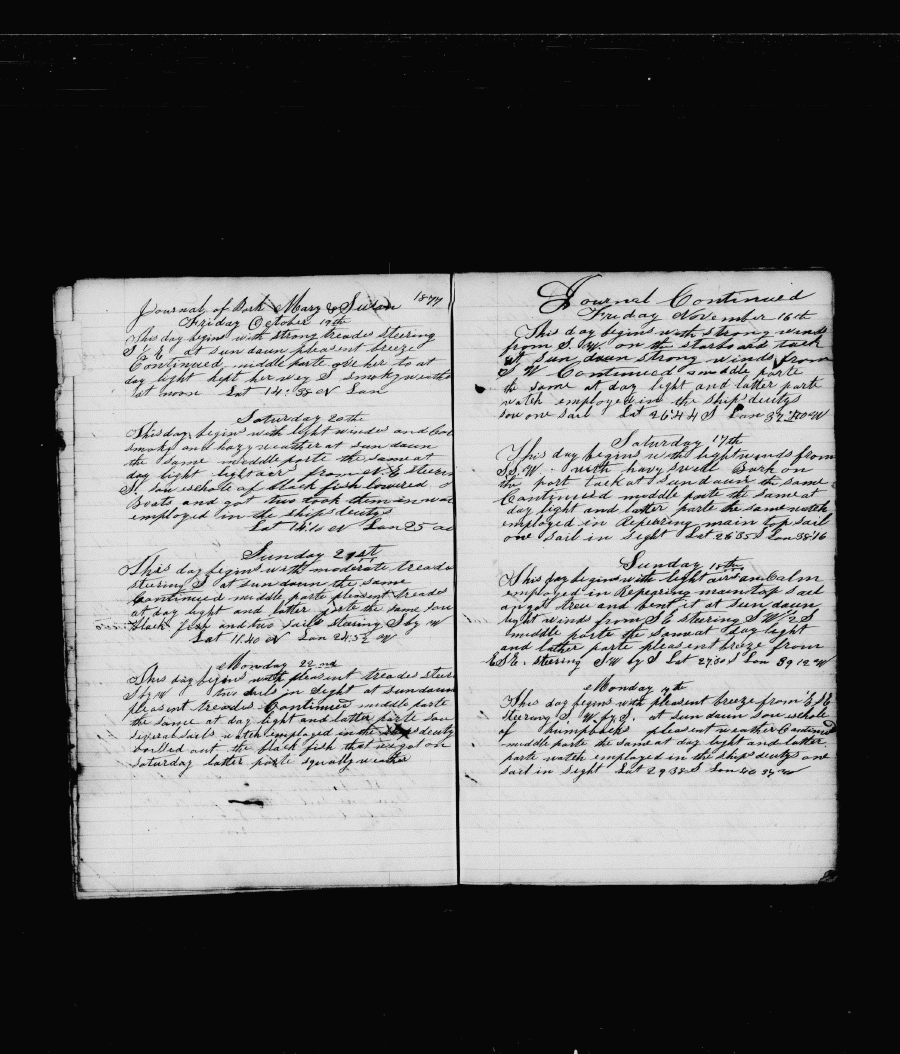 Journal of Bark Mary & Susan 1877
Friday October 19th
This day begins with strong treades steering
S E at sun daun pleasent breeze
Continued middle parte give her to at
day light kept her way S smoky weather
at noon Lat 14:38 N Lon
Saturday 20th
This day begins with light windes and Cal
smoky and hazy weather at sun daun
the same middle parte the same at
day light light airs from N E steering
S. sou eschole of black fish lowered
Boats and got two took them in wa
employed in the ships deutys
Lat 14:10 N Lon 25
Sunday 21st
This day begins with moderate treades
steering S at sun daun the same
Continued middle parte pleasent treades
at day light and latter parte the same sou
black fise and two sails steering S by W
Lat 11.40 N Lon 24.52 W
Monday 22nd
This day begins with pleasent treades steer
S by W two sails in sight at sundaun
pleasent treades Continued middle parte
the same at day light and latter parte sou
several sails watch employed in the ships deuty
boilled out the black fish that we got on
saturday latter parte squally weather
Journal Continued
Friday November 16th
This day begins with strong winds
from S. W. on the starboard tack
at sun daun strong winds from
S W Continued middle parte
the same at day light and latter parte
watch employed in the ships deutys
sou one sail Lat 26:44 S Lon 37:20 W
Saturday 17th
This day begins with light winds from
S.S.W. with havy swell Bark on
the port tack at sundaun the same
Continued middle parte the same at
day light and latter parte the same watch
employed in Repearing main top sail
one sail in sight Lat 26:35 S Lon 38:16
Sunday 18th
This day begins with light airs an Calm
employed in Repearing maintop sail
an got threu and bent it at sun daun
light winds from S E steering S W 1/2 S
middle parte the same at day light
and latter parte pleasent breeze from
E S E. steering S W by S Lat 27:30 S Lon 39.12 W
Monday 19th
This day begins with pleasent breeze from E S E
steering S. W. by S. at sun daun sou eschole
of humpbacks pleasent weather Continued
middle parte the same at day light and latter
parte watch employed in the ships deutys one
sail in sight Lat 29 38 S Lon 40 37 W